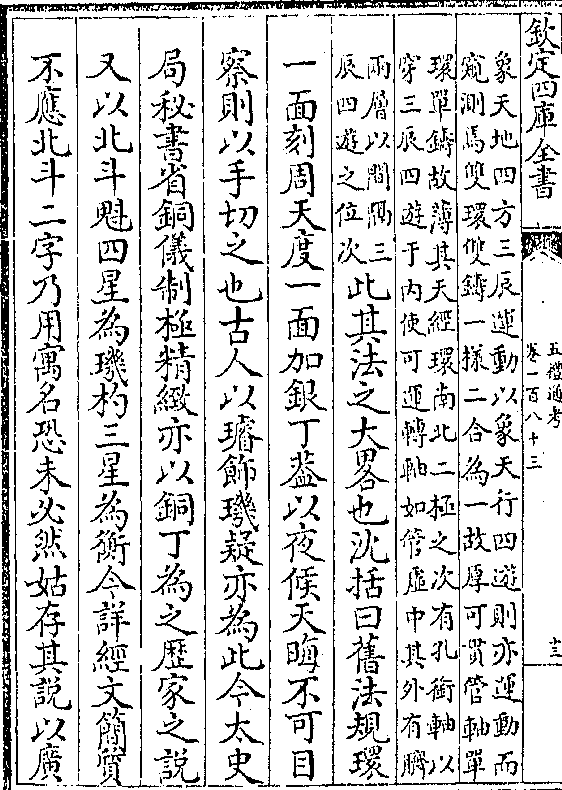 欽定四庫全書
五禮通考
卷一百八十三
十三
象天地四方三辰運動以象天行四遊則亦運動而
窺測焉雙環雙鑄一樣二合為一故厚可貫管軸單
環單鑄故薄其天經環南北二極之次有孔銜軸以
穿三辰四遊于內使可運轉軸如管虛中其外有臍
兩層以間隔三
辰四遊之位次
此其法之大畧也沈括曰舊法規環
一面刻周天度一面加銀丁葢以夜候天晦不可目
察則以手切之也古人以璿飾璣疑亦為此今太史
局秘書省銅儀制極精緻亦以銅丁為之歷家之說
又以北斗魁四星為璣杓三星為衡今詳經文簡質
不應北斗二字乃用寓名恐未必然姑存其說以廣